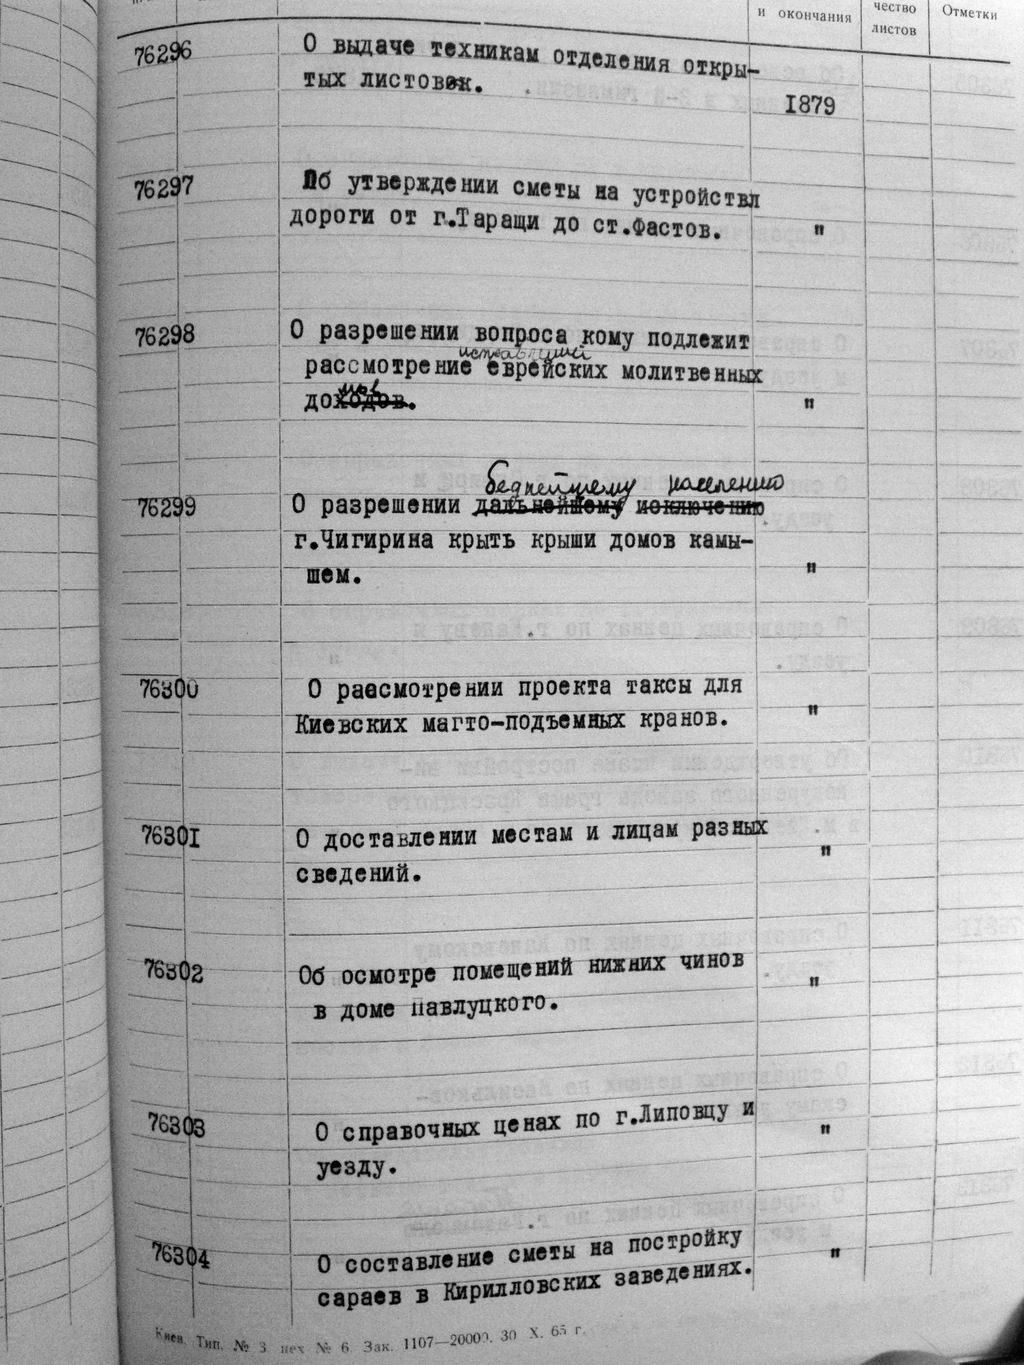 и окончания
чество
листов
Отметки
76296
О выдаче техникам отделения откры-
тых листовок.
1879
76297
Об утверждении сметы на устройствл
дороги от г.Таращи до ст.Фастов.
"
76298
О разрешении вопроса кому подлежит
рассмотрение еврейских молитвенных
мов
доходов.
"
беднейшему населению
76299
О разрешении дальнейшему исключению
г.Чигирина крыть крыши домов камы-
шем.
"
76300
О рассмотрении проекта таксы для
Киевских магто-подъемных кранов.
"
76301
О доставлении местам и лицам разных
сведений.
"
76302
Об осмотре помещений нижних чинов
в доме Павлуцкого.
"
76303
О справочных ценах по г.Липовцу и
уезду.
"
76304
О составление сметы на постройку
сараев в Кирилловских заведениях.
"
Киев. Тип. № 3 цех № 6. Зак. 1107—20000. 30 X. 65 г.